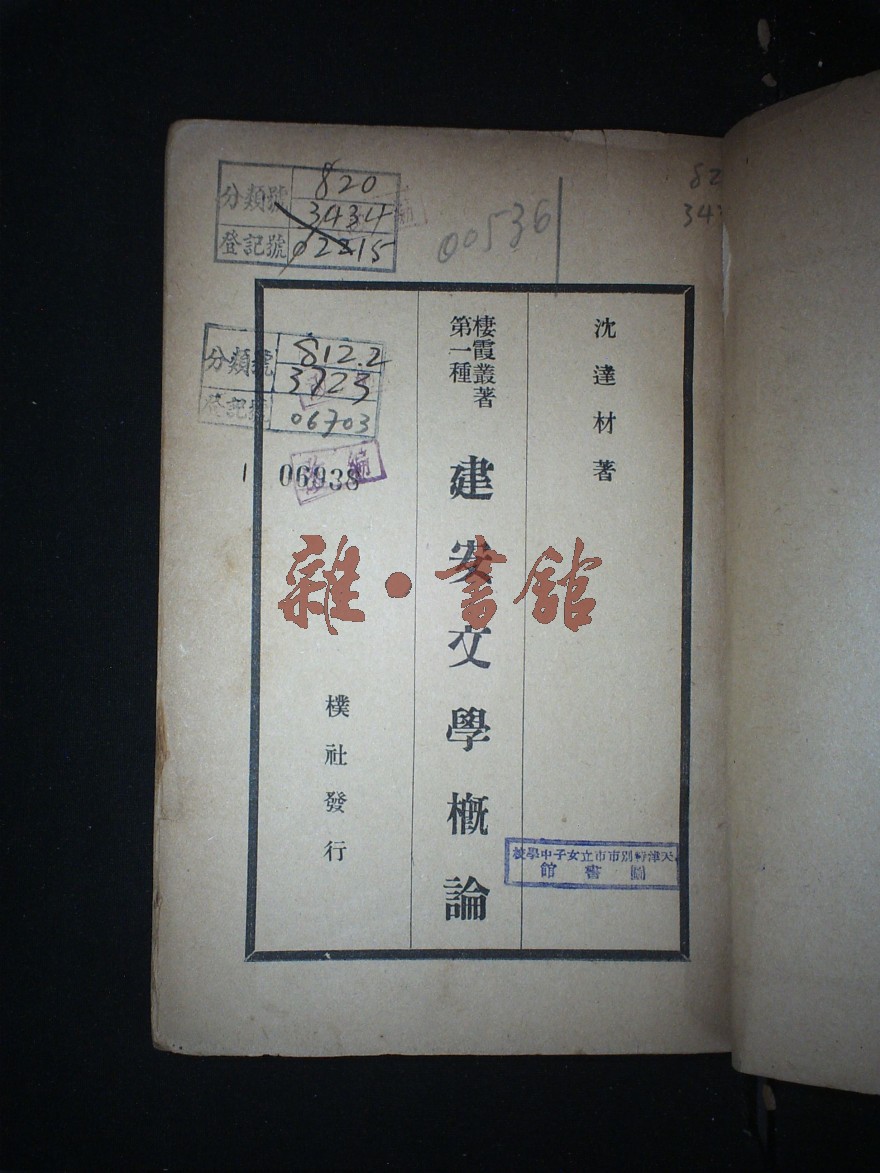 分類號 820
3434
登記號 02215
00536
82
343
沈達材著
棲霞叢著
第一種
建安文學概論
樸社發行
分類號 812.2
3723
登記號 06703
1 06938
雜·書館
天津特別市市立女子中學校
圖書館